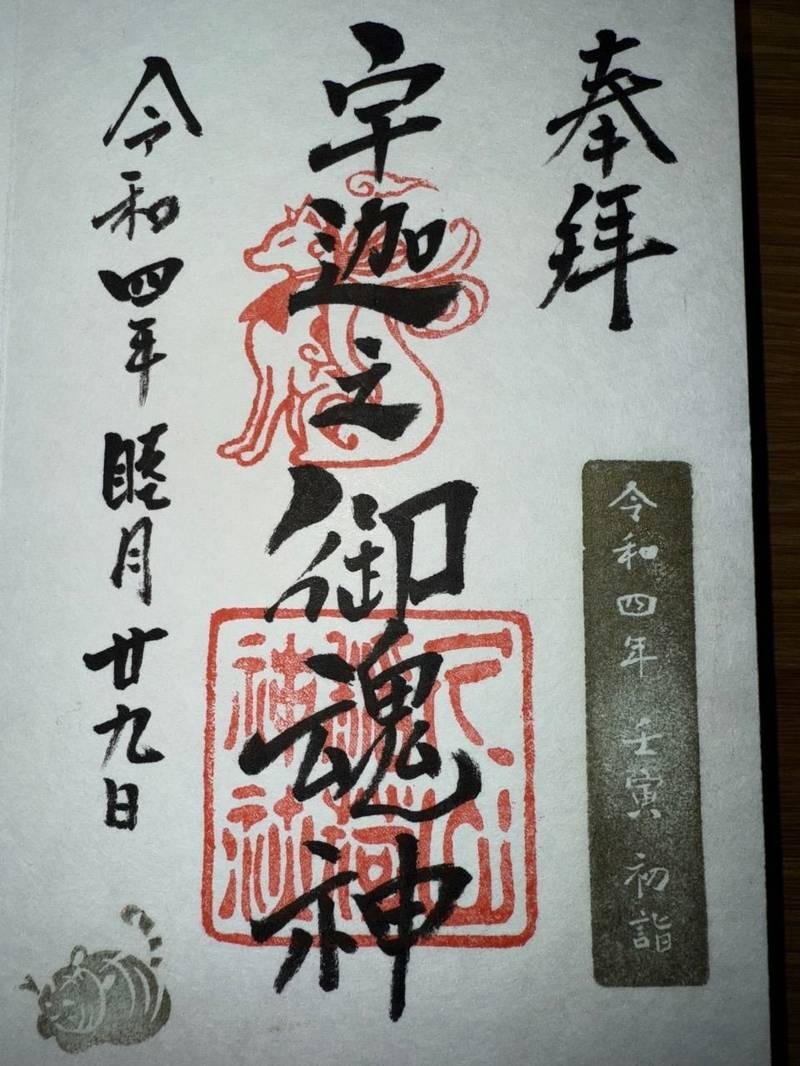 奉拝
令和四年 壬寅 初詣
宇迦之御魂神
神社
令和四年 睦月廿九日